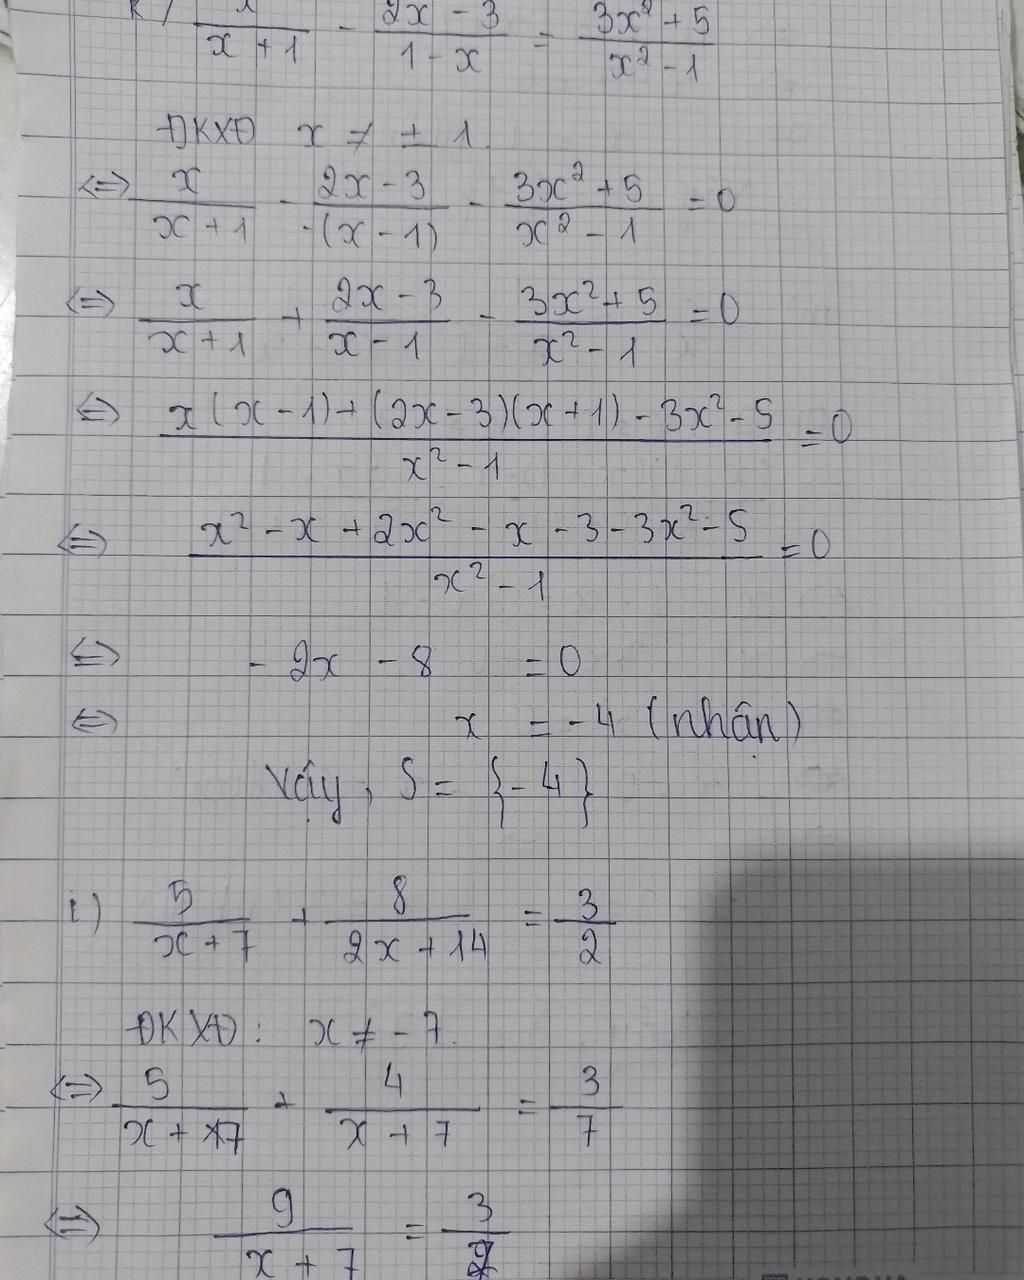 x/(x + 1) - (2x - 3)/(1 - x) = (3x² + 5)/(x² - 1)
ĐKXĐ x ≠ ± 1
<=> x/(x + 1) - (2x - 3)/(-(x - 1)) - (3x² + 5)/(x² - 1) = 0
<=> x/(x + 1) + (2x - 3)/(x - 1) - (3x² + 5)/(x² - 1) = 0
<=> (x(x - 1) + (2x - 3)(x + 1) - 3x² - 5)/(x² - 1) = 0
<=> (x² - x + 2x² - x - 3 - 3x² - 5)/(x² - 1) = 0
<=> - 2x - 8 = 0
<=> x = - 4 (nhận)
Vậy, S = {- 4}
i) 5/(x + 7) + 8/(2x + 14) = 3/2
ĐKXĐ: x ≠ - 7.
<=> 5/(x + 7) + 4/(x + 7) = 3/7
<=> 9/(x + 7) = 3/2